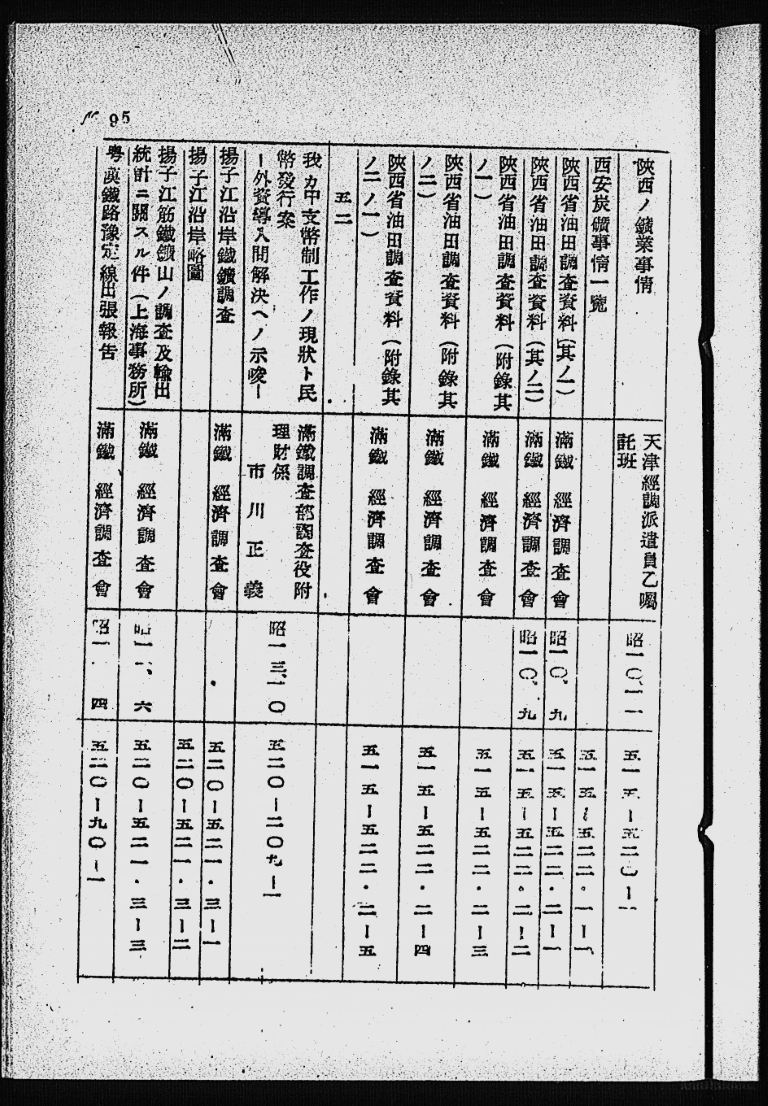 95
陜西ノ鑛業事情
天津經調派遣員乙囑
託班
昭一〇、一一
五一五ー五二〇ー一
西安炭礦事情一覽
五一五ー五二二・一ー一
陜西省油田調査資料(其ノ一)
滿鐵 經濟調査會
昭一〇、九
五一五ー五二二・二ー一
陜西省油田調査資料(其ノ二)
滿鐵 經濟調査會
昭一〇、九
五一五ー五二二・二ー二
陜西省油田調査資料(附錄其
ノ一)
滿鐵 經濟調査會
五一五ー五二二・二ー三
陜西省油田調査資料(附錄其
ノ二)
滿鐵 經濟調査會
五一五ー五二二・二ー四
陜西省油田調査資料(附錄其
ノ二ノ一)
滿鐵 經濟調査會
五一五ー五二二・二ー五
五二
我カ中支幣制工作ノ現狀ト民
幣發行案
ー外資導入問解決ヘノ示唆ー
滿鐵調査部調査役附
理財係
市川正義
昭一三、一〇
五二〇ー二〇九ー一
揚子江沿岸鐵鑛調査
滿鐵 經濟調査會
五二〇ー五二一・三ー一
揚子江沿岸略圖
五二〇ー五二一・三ー二
揚子江筋鐵鑛山ノ調査及輸出
統計ニ關スル件(上海事務所)
滿鐵 經濟調査會
昭一一、六
五二〇ー五二一・三ー三
粤漢鐵路豫定線出張報告
滿鐵 經濟調査會
昭一 四
五二〇ー九〇ー一